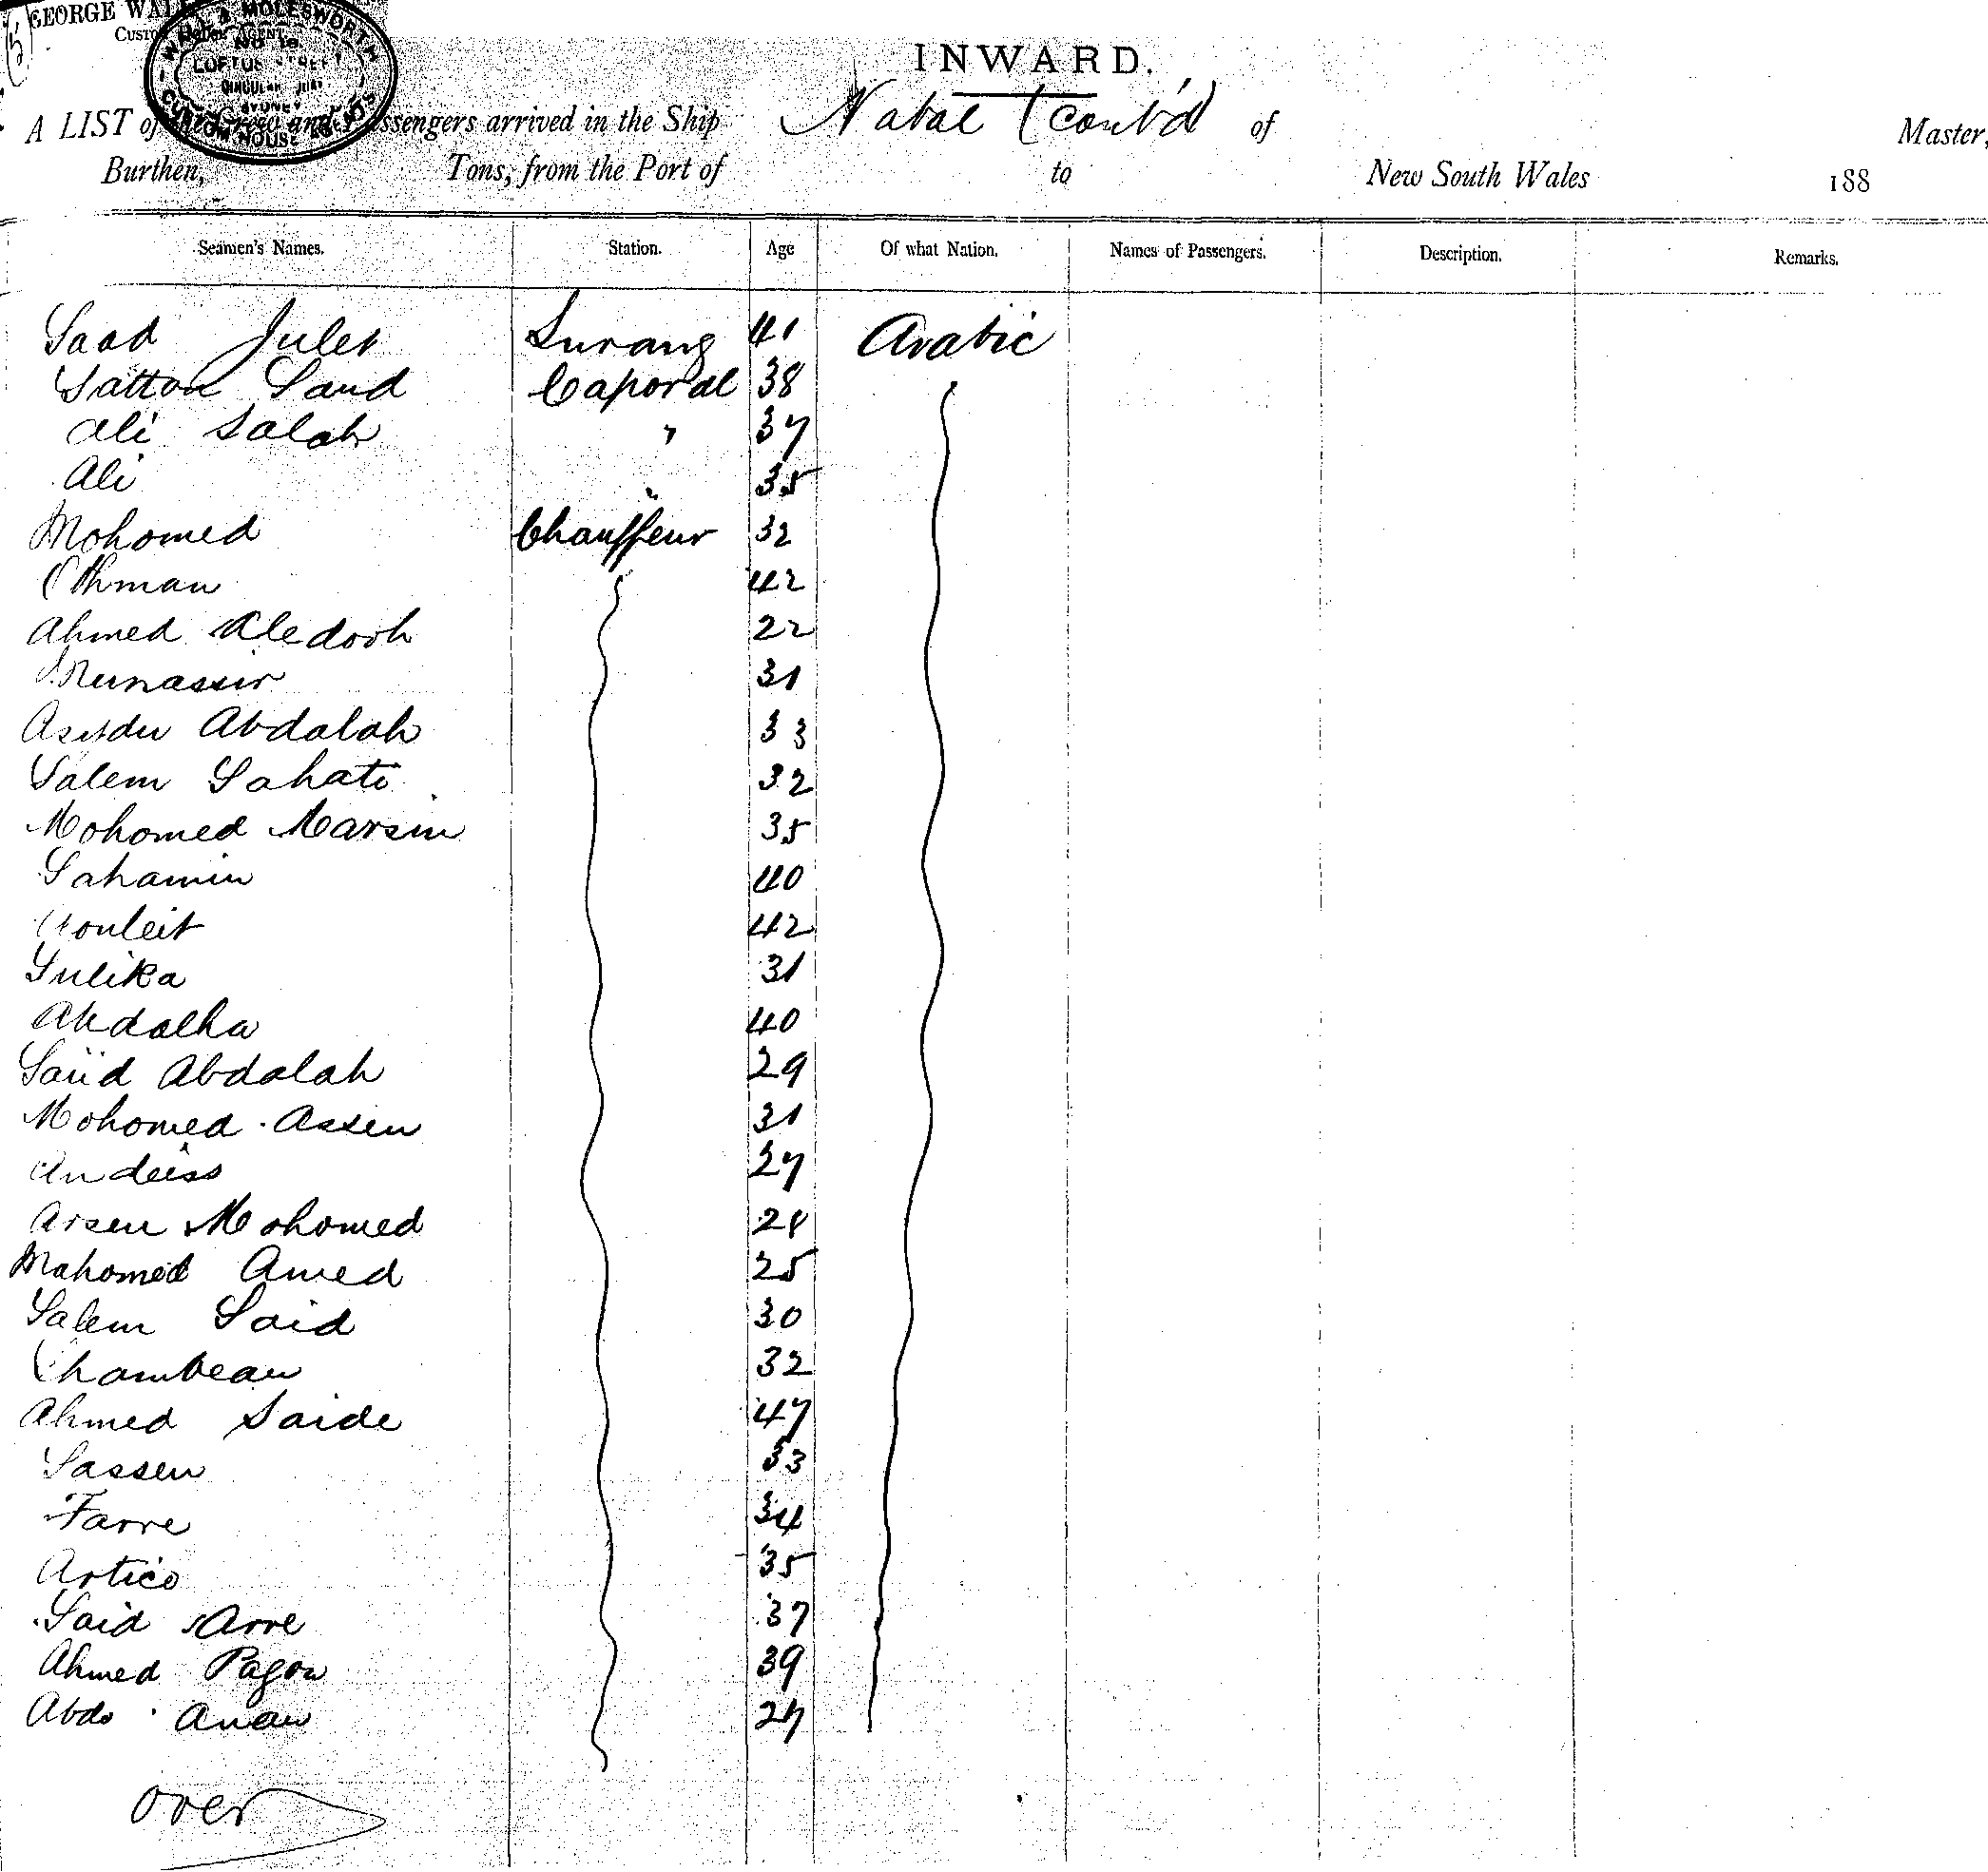 GEORGE WALL
CUSTOM HOUSE AGENT
WALL & MOLESWORTH
No 10
LOFTUS STREET
CIRCULAR QUAY
SYDNEY
CUSTOM HOUSE AGENTS
INWARD.
A LIST of the Crew and Passengers arrived in the Ship Natal (cont'd of Master,
Burthen, Tons, from the Port of to New South Wales 188
Seamen's Names. Station. Age Of what Nation. Names of Passengers. Description. Remarks.
Saad Julet Surang 41 Arabic
Satton Saud Caporal 38
Ali Salah " 37
Ali " 35
Mohomed Chauffeur 32
Othman 42
Ahmed Aledooh 22
Munassir 31
Abdalah 33
Salem Sahati 32
Mohomed Marsin 35
Sahamin 40
42
Sulika 31
Abdalha 40
Saïd Abdalah 29
Mohomed Assen 31
Andeiss 27
Arsen Mohomed 28
Mahomed Amed 25
Salem Said 30
Chambeau 32
Ahmed Saide 47
Sassen 33
Farre 34
Artico 35
Said Arre 37
Ahmed Pagou 39
Abdo Anau 27
over